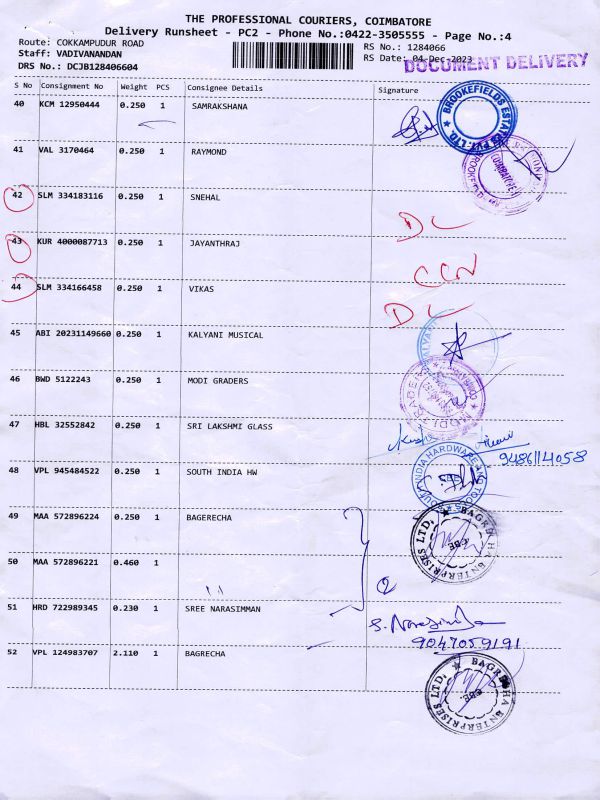 THE PROFESSIONAL COURIERS, COIMBATORE
Delivery Runsheet - PC2 - Phone No.:0422-3505555 - Page No.:4
Route: COKKAMPUDUR ROAD RS No.: 1284066
Staff: VADIVANANDAN RS Date: 04-Dec-2023
DRS No.: DCJB128406604 DOCUMENT DELIVERY
S No Consignment No Weight PCS Consignee Details Signature
40 KCM 12950444 0.250 1 SAMRAKSHANA
BROOKEFIELDS ESTATES PVT. LTD.
41 VAL 3170464 0.250 1 RAYMOND
42 SLM 334183116 0.250 1 SNEHAL DL
43 KUR 4000087713 0.250 1 JAYANTHRAJ CCN
44 SLM 334166458 0.250 1 VIKAS DL
45 ABI 20231149660 0.250 1 KALYANI MUSICAL
46 BWD 5122243 0.250 1 MODI GRADERS
MODI TRADERS
47 HBL 32552842 0.250 1 SRI LAKSHMI GLASS
9486114058
48 VPL 945484522 0.250 1 SOUTH INDIA HW
SOUTH INDIA HARDWARE AND TOOLS
49 MAA 572896224 0.250 1 BAGERECHA
BAGRECHA ENTERPRISES LTD. CBE.
50 MAA 572896221 0.460 1 " 2
51 HRD 722989345 0.230 1 SREE NARASIMMAN S. Narasimha
9047059191
52 VPL 124983707 2.110 1 BAGRECHA
BAGRECHA ENTERPRISES LTD. CBE.